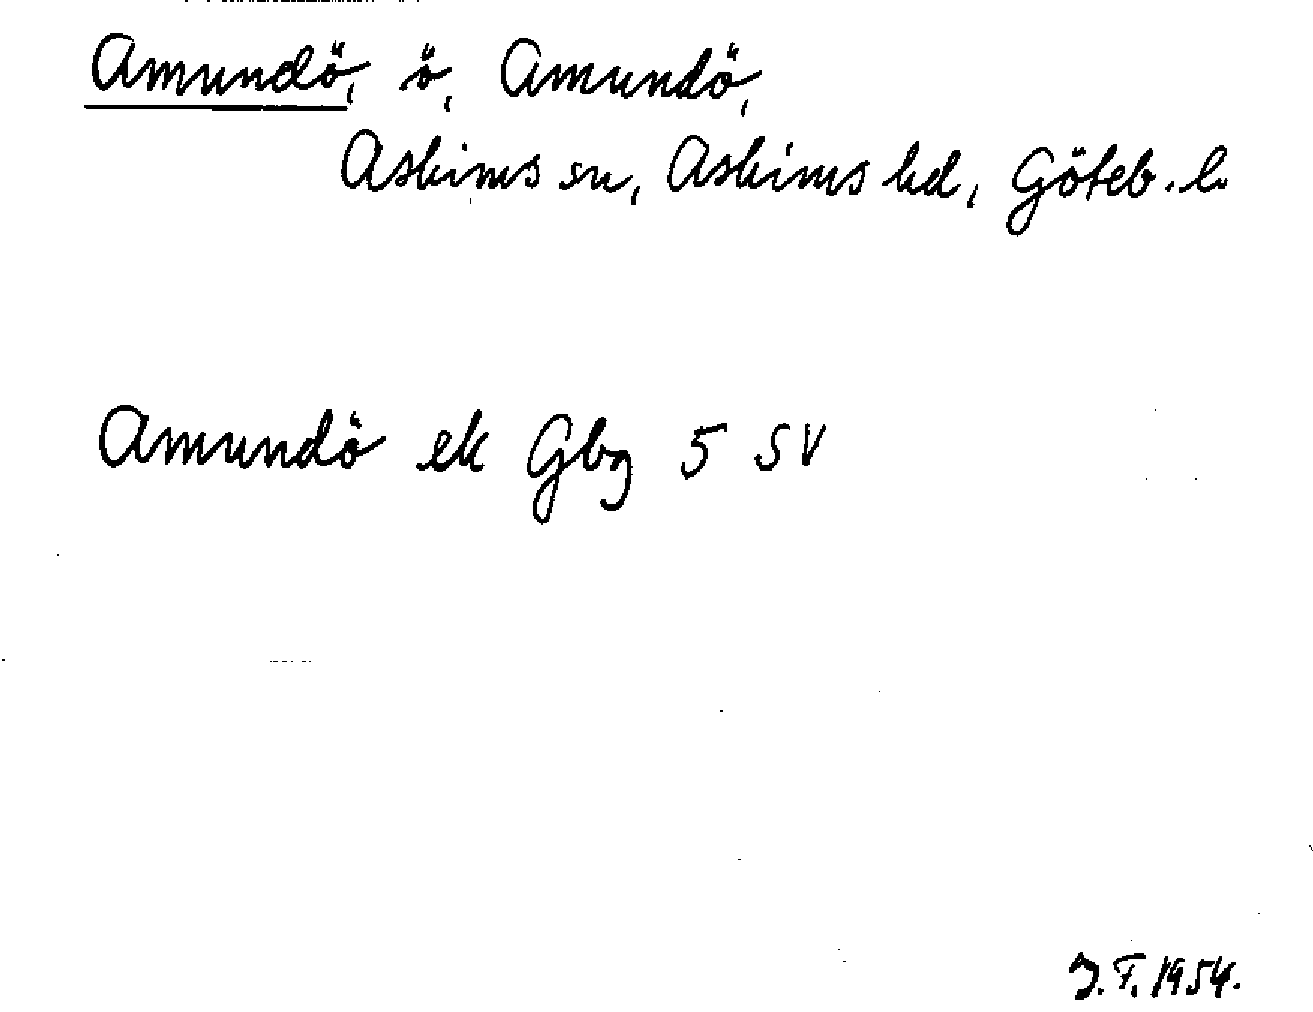 Amundö, ö, Amundö,
Askims sn, Askims hd, Göteb. l.
Amundö ek Gbg 5 SV
J.F. 1954.